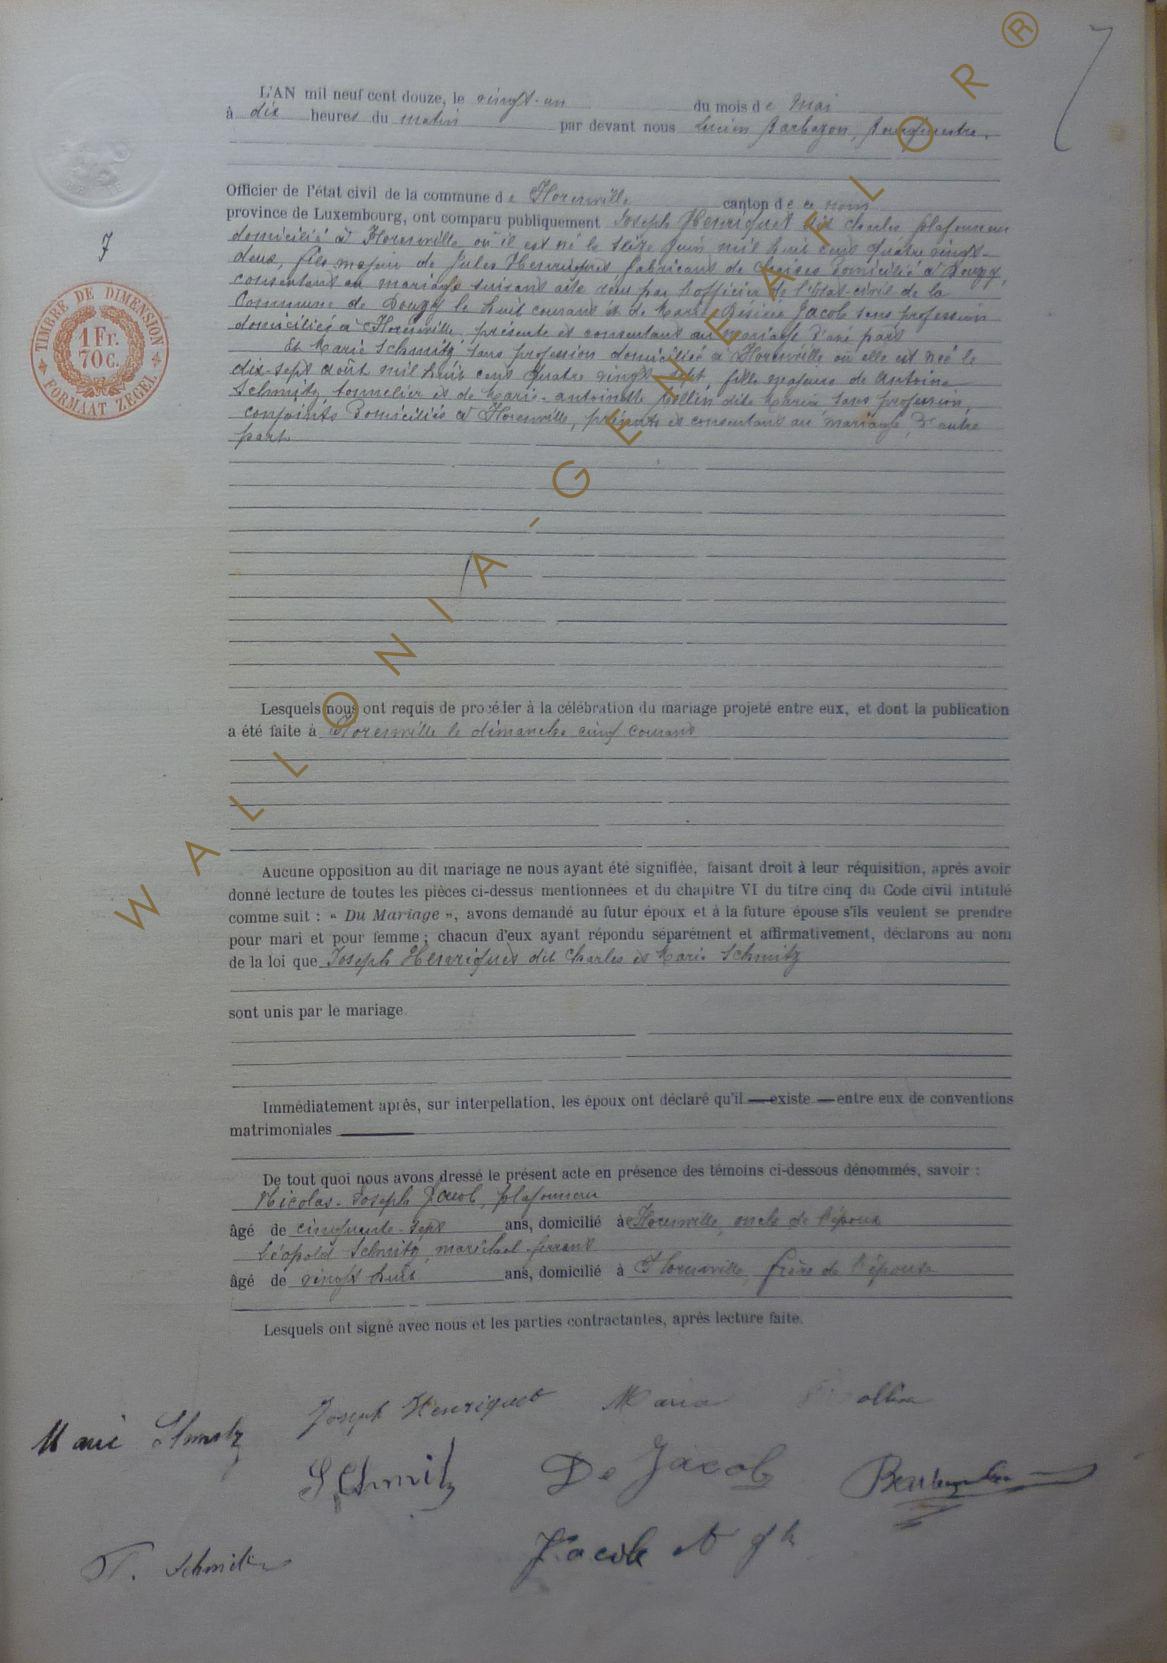 7
L'AN mil neuf cent douze, le vingt-un du mois de Mai
à dix heures du matin par devant nous Lucien Barbazon, Bourgmestre,
Officier de l'état civil de la commune de Florenville canton de ce nom
province de Luxembourg, ont comparu publiquement Joseph Henriquet dit Charles plafonneur
domicilié à Florenville où il est né le seize juin mil huit cent quatre vingt-
deux, fils majeur de Jules Henriquet fabricant de chaises domicilié à Douzy,
consentant au mariage suivant acte reçu par l'officier de l'état civil de la
Commune de Douzy le huit courant et de Marie Désirée Jacob sans profession
domiciliée à Florenville, présente et consentant au mariage d'une part
Et Marie Schmitz sans profession domiciliée à Florenville où elle est née le
dix-sept août mil huit cent quatre vingt sept, fille majeure de Antoine
Schmitz tonnelier et de Marie-Antoinette Rollin dite Maria sans profession,
conjoints domiciliés à Florenville, présents et consentant au mariage, d'autre
part
7
TIMBRE DE DIMENSION
1 Fr.
70 C.
FORMAAT ZEGEL
Lesquels nous ont requis de procéder à la célébration du mariage projeté entre eux, et dont la publication
a été faite à Florenville le dimanche cinq courant
Aucune opposition au dit mariage ne nous ayant été signifiée, faisant droit à leur réquisition, après avoir
donné lecture de toutes les pièces ci-dessus mentionnées et du chapitre VI du titre cinq du Code civil intitulé
comme suit : « Du Mariage », avons demandé au futur époux et à la future épouse s'ils veulent se prendre
pour mari et pour femme ; chacun d'eux ayant répondu séparément et affirmativement, déclarons au nom
de la loi que Joseph Henriquet dit Charles et Marie Schmitz
sont unis par le mariage
Immédiatement après, sur interpellation, les époux ont déclaré qu'il existe entre eux de conventions
matrimoniales
De tout quoi nous avons dressé le présent acte en présence des témoins ci-dessous dénommés, savoir :
Nicolas-Joseph Jacob, plafonneur
âgé de cinquante-sept ans, domicilié à Florenville, oncle de l'époux
Léopold Schmitz, maréchal-ferrant
âgé de vingt huit ans, domicilié à Florenville, frère de l'épouse
Lesquels ont signé avec nous et les parties contractantes, après lecture faite.
Joseph Henriquet Maria Rollin
Marie Schmitz
Schmitz De Jacob
Jacob N Jh
Schmitz
WALLONIA-GENEAFLOR ®